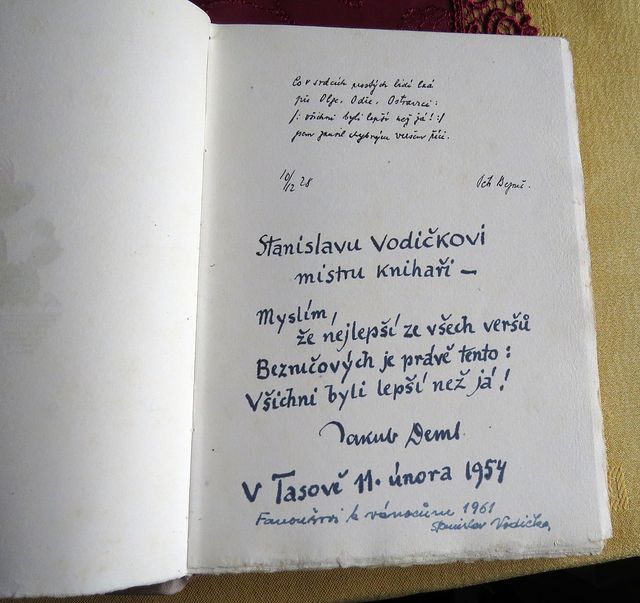 Co v srdcích prostých lidí lká
při Olze, Odře, Ostravici:
/: všichni byli lepší než já! :/
jsem chybným veršem říci.
10/12 28
Petr Bezruč.
Stanislavu Vodičkovi
mistru knihaři –
Myslím,
že nejlepší ze všech veršů
Bezručových je právě tento:
Všichni byli lepší než já!
Jakub Deml
V Tasově 11. února 1954
k vánocům 1961
Stanislav Vodička